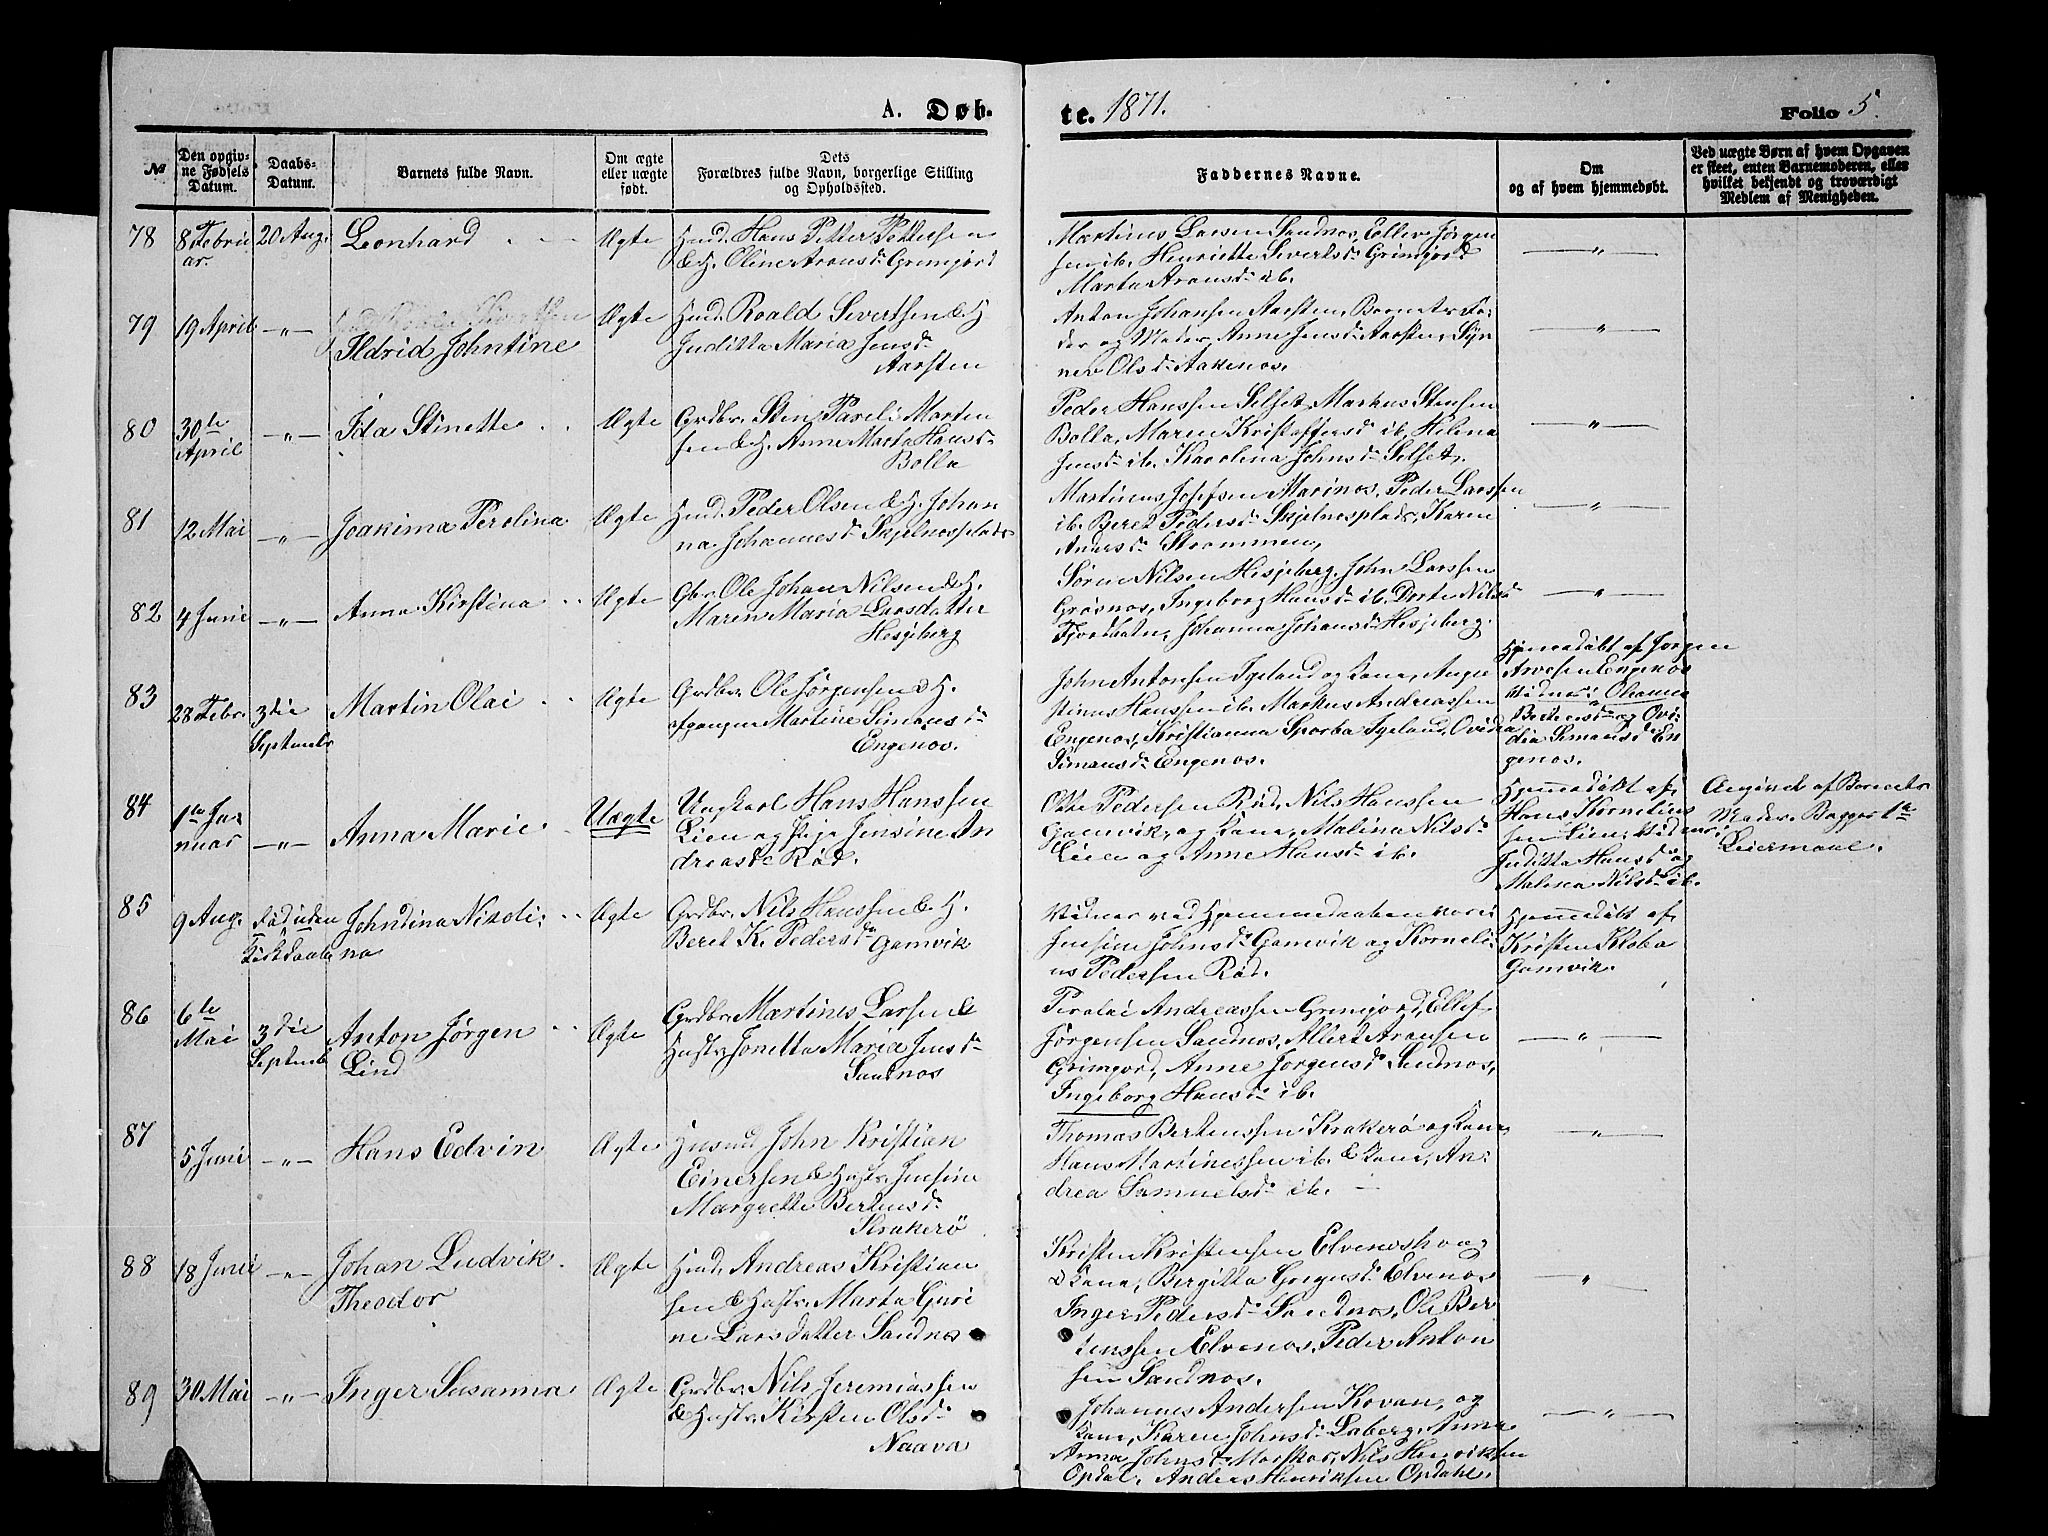 A. Døb-
te. 1871.
Folio 5.
№
Den opgiv-
ne Fødsels
Datum.
Daabs-
Datum.
Barnets fulde Navn.
Om ægte
eller uægte
født.
Dets
Forældres fulde Navn, borgerlige Stilling
og Opholdssted.
Faddernes Navne.
Om
og af hvem hjemmedøbt.
Ved uægte Børn af hvem Opgaven
er skeet, enten Barnemoderen, eller
hvilket bekjendt og troværdigt
Medlem af Menigheden.
78
8 Febru
ar.
20 Aug.
Leonhard
Ægte
Hmd. Hans Petter Pettersen
& H. Oline Aronsd. Grimjord
Martinus Larsen Sandnos, Ellev Jørgen
sen ib. Henriette Sivertsd. Grimjord
Marta Aronsd. ib.
— „ —
79
19 April
— „ —
Ildrid Johntine
Ægte
Hmd. Roald Sivertsen & H
Juditta Maria Jensd.
Aarsten
Anton Johansen Aarsten, Barnets Fa-
der og Moder, Anne Jensd. Aarsten, Syn
nev Olsd. Aakenos.
— „ —
80
30te
April
— „ —
Ida Stinette
Ægte
Grdbr. Sten Pareli Marten
sen & H. Anne Marta Hansd.
Bolla
Peder Hanssen Selset, Markus Stensen
Bolla, Maren Kristoffersd. ib. Helena
Jensd. ib. Karolina Johnsd. Selset.
— „ —
81
12 Mai
— „ —
Joakima Perolina
Ægte
Hmd. Peder Olsen & H. Johan
na Johannesd. Skjelnosplads
Martinus Josefsen Marinos, Peder Larssen
ib. Beret Pedersd. Skjelnosplads, Karen
Andersd. Strømmen,
— „ —
82
4 Juni
— „ —
Anna Kirstina
Ægte
Gbr. Ole Johan Nilsen & H.
Maren Maria Larsdatter
Hesjeberg
Søren Nilsen Hesjeberg, John Larssen
Grøsnos, Ingeborg Hansd. ib. Dorte Nilsd.
Fjordbotn, Johanna Johansd. Hesjeberg.
— „ —
83
28 Febr.
3die
Septemb
Martin Olai
Ægte
Grdbr. Ole Jørgensen & H.
afgangne Martine Simonsd.
Engenos.
John Antonsen Igeland og Kone, Augu
stinus Hanssen ib. Markus Andreassen
Engenos, Kristianna Sporba Igeland, Ovidia
Simonsd. Engenos.
Hjemmedøbt af Jørgen
Arnesen Engenos
Vidner: Oleanna
Bertensd. og Ovi-
dia Simonsd. En
genos.
84
1te Ja-
nuar
— „ —
Anna Marie
Uægte
Ungkarl Hans Hanssen
Lien og Pige Jensine An
dreasd. Rød.
Okke Pedersen Rød, Nils Hanssen
Gamvik, og Kone, Malina Nilsd.
Lien og Anne Hansd. ib.
Hjemmedøbt af
Hans Kornelius
sen Lien, Vidner
Juditta Hansd. og
Malena Nilsd. ib.
Angivet af Barnets
Moder. Begges 1te
Leiermaal.
85
9 Aug.
Død uden
Kirkdaab
Johndina Nikoli-
na
Ægte
Grdbr. Nils Hanssen & H.
Beret K. Pedersd. Gamvik
Vidner ved Hjemmedaaben vare
Jensine Johnsd. Gamvik og Korneli-
us Pedersen Rød.
Hjemmedøbt af
Kristen Kloba
Gamvik.
86
6te
Mai
3die
Septemb
Anton Jørgen
Lind
Ægte
Grdbr. Martines Larsen &
Hustr. Jonetta Maria Jensd.
Sandnos
Perolai Andreassen Grimjord, Ellef
Jørgensen Sandnos, Albert Aronsen
Grimjord, Anne Jørgensd. Sandnos,
Ingeborg Hansd. ib.
— „ —
87
5 Juni
— „ —
Hans Edvin
Ægte
Husmd John Kristian
Einersen & Hustr. Jensine
Margrette Bertensd.
Krakerö
Thomas Bertenssen Krakerö og Kone,
Hans Martinessen ib. & Kone, An-
drea Samuelsd. ib.
— „ —
88
18 Juni
— „ —
Johan Ludvik
Theodor
Ægte
Hmd. Andreas Kristian
sen & Hustr. Marta Guri
ne Larsdatter Sandnos
Kristen Kristensen Elvenoshaug
& Kone, Birgitta Gregusd. Elvenos
Inger Pedersd. Sandnos, Ole Ber
tenssen Elvenos, Peder Anton
sen Sandnos.
„
89
30 Mai
— „ —
Inger Susanna
Ægte
Grdbr. Nils Jeremiassen
& Hustr. Kirsten Olsd.
Naava
Johannes Andersen Kovan, og
Kone, Karen Johnsd. Laberg, Anna
Anna Johnsd. Nils Henriksen
Opdal, Anders Henriksen Opdahl.
— „ —